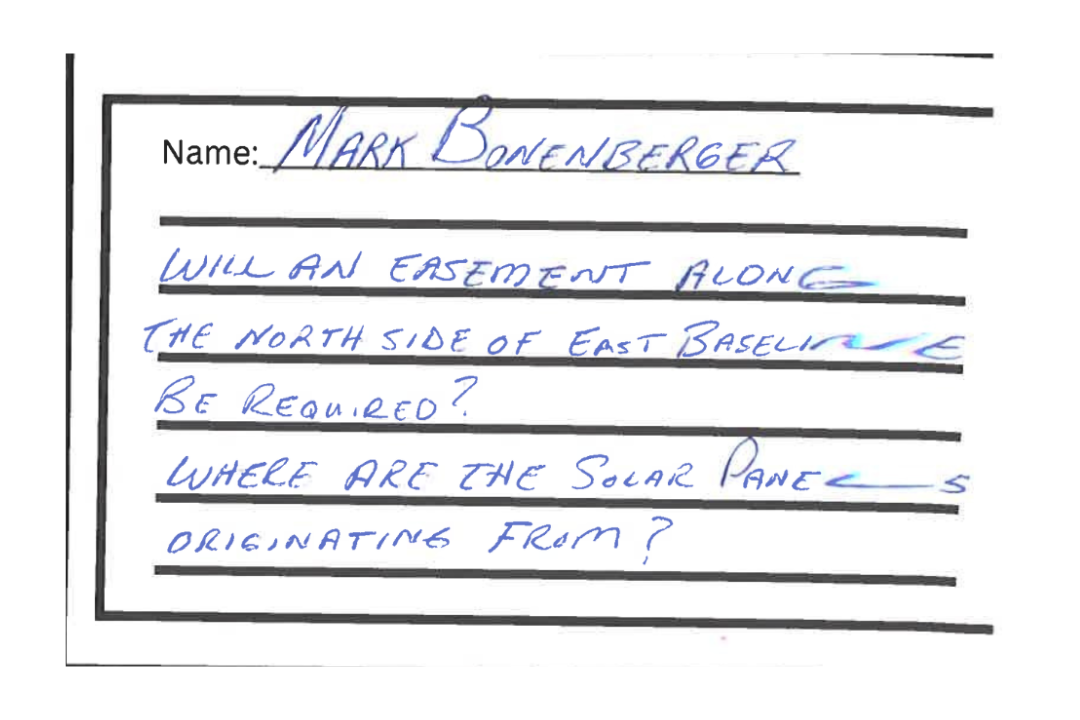 Name: MARK BONENBERGER
WILL AN EASEMENT ALONG
THE NORTH SIDE OF EAST BASELINE
BE REQUIRED?
WHERE ARE THE SOLAR PANELS
ORIGINATING FROM?